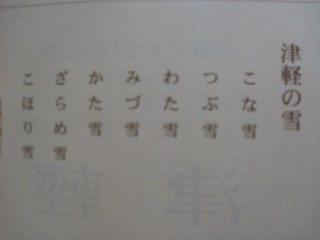 津軽の雪
こな雪
つぶ雪
わた雪
みづ雪
かた雪
ざらめ雪
こほり雪